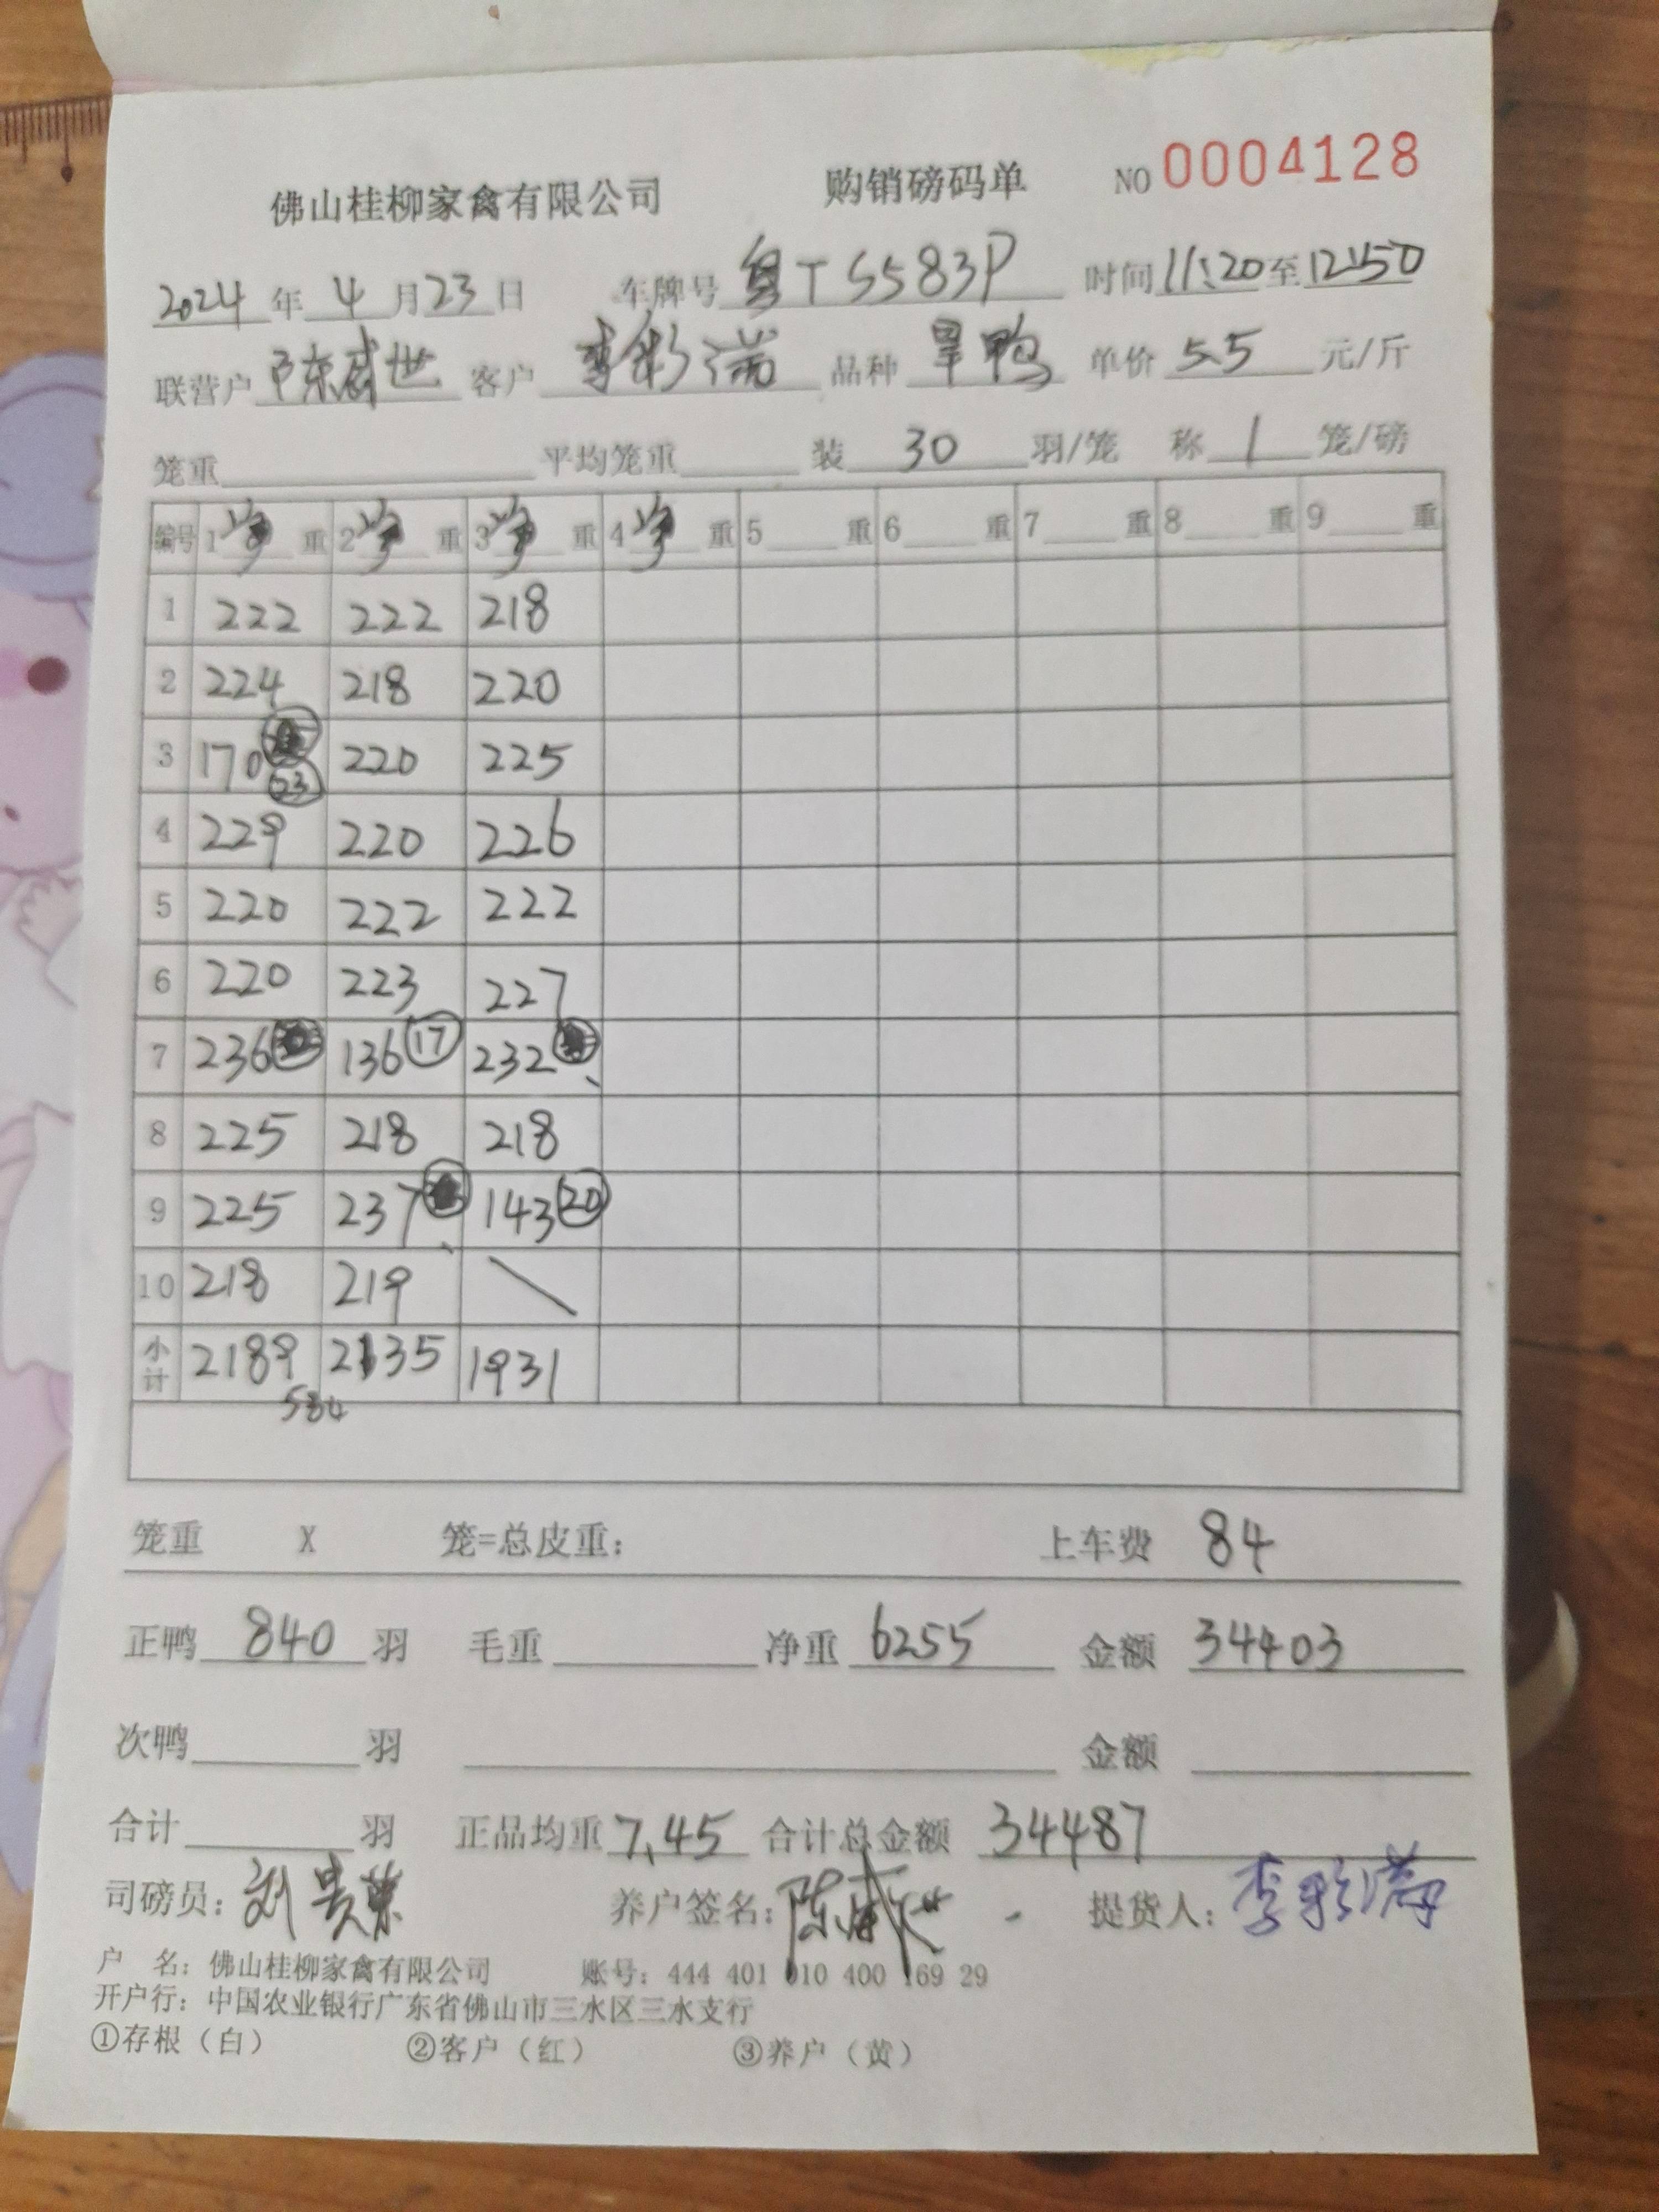 佛山桂柳家禽有限公司 购销磅码单 NO 0004128
2024年4月23日 车牌号 粤TS583P 时间11:20至12:50
联营户 陈威世 客户 李彩满 品种 旱鸭 单价 5.5 元/斤
笼重 平均笼重 装 30 羽/笼 称 1 笼/磅
编号 1 净重 2 净重 3 净重 4 净重 5 重 6 重 7 重 8 重 9 重
1 222 222 218
2 224 218 220
3 170 23 220 225
4 229 220 226
5 220 222 222
6 220 223 227
7 236 136 17 232
8 225 218 218
9 225 237 143 20
10 218 219 \
小计 2189 2135 1931
笼重 X 笼=总皮重: 上车费 84
正鸭 840 羽 毛重 净重 6255 金额 34403
次鸭 羽 金额
合计 羽 正品均重 7.45 合计总金额 34487
司磅员: 刘贵荣 养户签名: 陈威世 提货人: 李彩满
户 名: 佛山桂柳家禽有限公司 账号: 444 401 010 400 169 29
开户行: 中国农业银行广东省佛山市三水区三水支行
①存根(白) ②客户(红) ③养户(黄)